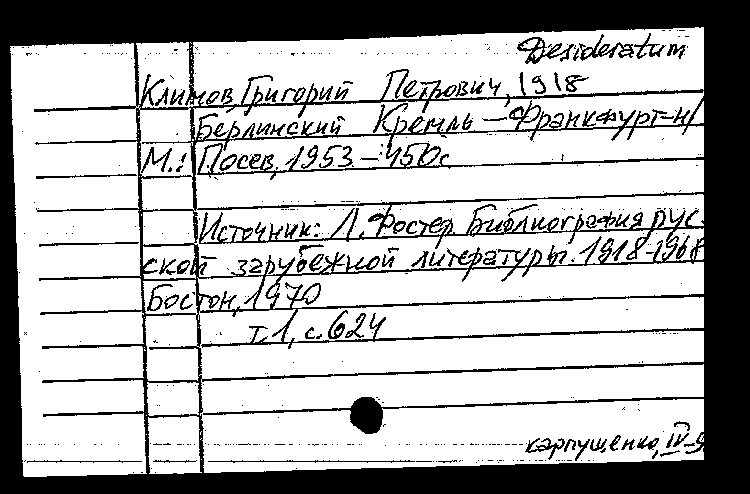 Desideratum
Климов, Григорий Петрович, 1918
Берлинский Кремль – Франкфурт-н/
М.: Посев, 1953 – 450с
Источник: Л. Фостер. Библиография рус-
ской зарубежной литературы. 1918-1968
Бостон, 1970
т.1, с.624
карпушенко, IV-9